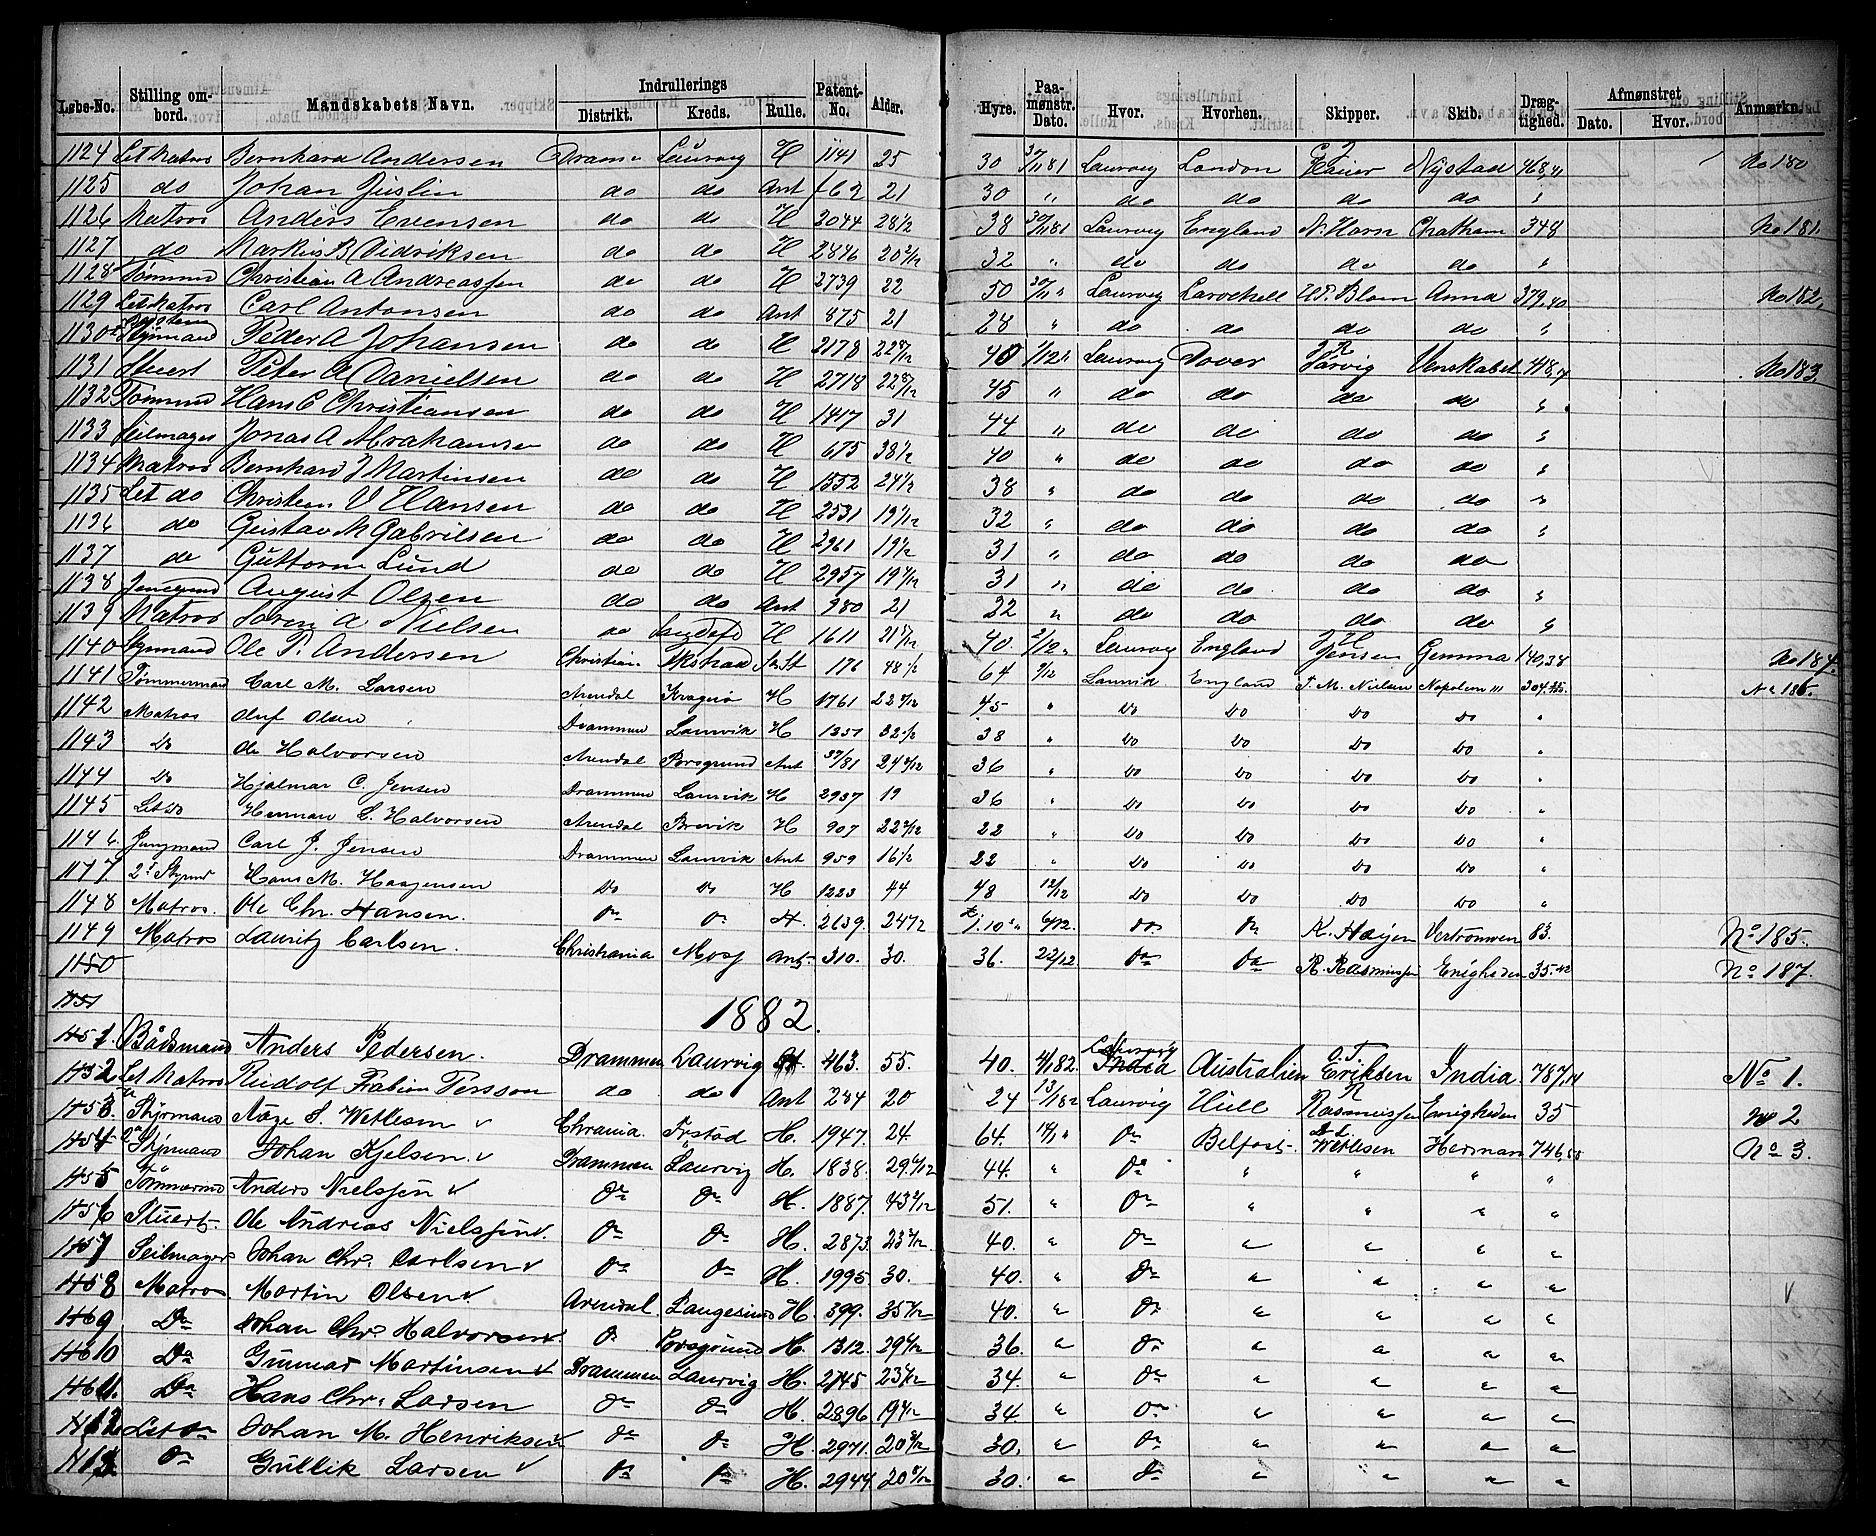 Løbe-No. Stilling ombord. Mandskabets Navn. Indrullerings Distrikt. Kreds. Rulle. Patent-No. Alder. Hyre. Paamønstr. Dato. Hvor. Hvorhen. Skipper. Skib. Drægtighed. Afmønstret Dato. Hvor. Anmærkn.
1124 Let Matros Bernhard Andersen Dram Laurvig H 1141 25 30 30/11 81 Laurvig London Nystad 468,41 No 180
1125 do Johan Juslin do do Ant 462 21 30 " do do do do "
1126 Matros Anders Evensen do do H 2044 28 1/2 38 30/11 81 Laurvig England N. Horn Chatham 348 No 181
1127 do Markus B Didriksen do do H 2846 20 2/12 32 " do do do do "
1128 Tømmd Christian A Andreassen do do H 2739 22 50 30/11 " Laurvig Larochell Blom Anna 379,40 No 182
1129 Let Matros Carl Antonsen do do Ant 875 21 28 " do do do do "
1130 Peder A Johansen do do H 2178 40 1/12 " Laurvig Dover Jarvig Venskabet 418,7 No 183
1131 Stuert Peter A Danielsen do do H 2718 45 " do do do do "
1132 Tømmd Hans C Christiansen do do H 1417 31 44 " do do do do "
1133 Seilmager Jonas A Abrahamse do do H 675 38 1/2 40 " do do do do "
1134 Matros Bernhard J Martinsen do do H 1552 24 1/2 38 " do do do do "
1135 Let do Christian V Hansen do do H 2531 32 " do do do do "
1136 do Gustav M Gabrilsen do do H 2961 31 " do do do do
1137 do Guttorm Lund do do H 2957 31 " do do do do "
1138 Jungmd August Olsen do do Ant 980 21 22 " do do do do "
1139 Matros Soren A Nielsen do H 1611 40 2/12 " Laurvig England J H Jensen Gemma 140,38 No 184
1140 Styrmand Ole P. Andersen Christian 176 48 1/2 64 9/12 Laurvik England T. M. Nielsen Napoleon III 304 No 186
1141 Tømmermand Carl M. Larsen Arendal Kragerø H 1761 45 " Do Do Do Do "
1142 Matros Oluf Olsen Drammen Laurvik H 1351 32 1/2 38 " Do Do Do Do "
1143 Do Ole Halvorsen Arendal Porsgrund Ant 37/81 36 " Do Do Do Do "
1144 Do Hjalmar C. Jensen Drammen Laurvik H 2937 19 36 " Do Do Do Do "
1145 Let Do Herman C. Halvorsen Arendal Brevik H 907 22 " Do Do Do Do "
1146 Jungmand Carl J. Jensen Drammen Laurvik Ant 959 16 1/2 22 " Do Do Do Do "
1177 2d Hans M. Haagensen Do Do H 1223 44 48 12/12 Do Do Do Do "
1148 Matros. Ole Chr. Hansen. Do Do H. 2639. 6/12. Do Do K. Høyer Vertrouwen 83. No 185.
1149 Matros Lauritz Carlsen. Christiania Moss Ant 310. 30. 36. 22/12 Do Do R. Rasmussen Enigheden 35.42 No 187.
1150
1151 1882.
1. Bådsmand Anders Pedersen. Drammen Laurvig 463. 55. 40. 4/1 82. Laurvig Australien O. T. Eriksen India 787,11 No 1.
2 Let Matros Rudolf Fabian Persson do do Ant 234 20 24 13/1 82 Laurvig Hull R Rasmussen Enigheden 35 No 2
3 Styrmand Aage S. Wetlesen v Chrania. Frstad H. 1947. 24. 64. 14/1 " Do Belfast Wetlesen Herman 746,55 No 3.
4 2d Styrmand Johan Kjelsen. v Drammen Laurvig H. 1838. 44. " Do " " " "
5 Tømmermd Anders Nielssen v Do Do H. 1887. 51. " Do " " " "
6 Stuert. Ole Andreas Nielssen v. Do Do H. 2873. 40. " Do " " " "
7 Seilmager Johan Chr. Carlsen v Do Do H. 1995. 30. 40. " Do " " " "
8 Matros Martin Olsen v. Arendal Langesund H. 399. 40. " Do " " " "
9 Do Johan Chr. Halvorsen v Do Porsgrund H. 1312. 36. " Do " " " "
10 Do Gunnar Martinsen v Drammen Laurvig H. 2745 34. " Do " " " "
11. Do Hans Chr. Larsen Do Do H. 2896 34. " Do " " " "
12 Let Do Johan M. Henriksen v Do Do H. 2971. 30. " Do " " " "
13. Do Gullik Larsen v Do Do H. 2944. 30. " Do " " " "